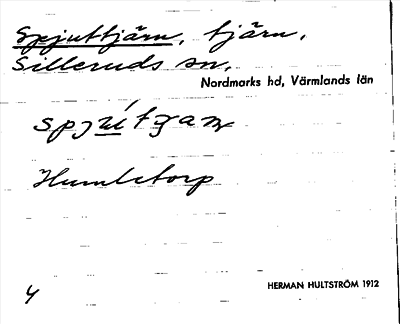 Spjuttjärn, tjärn,
Silleruds sn,
Nordmarks hd, Värmlands län
Humletorp
4
HERMAN HULTSTRÖM 1912